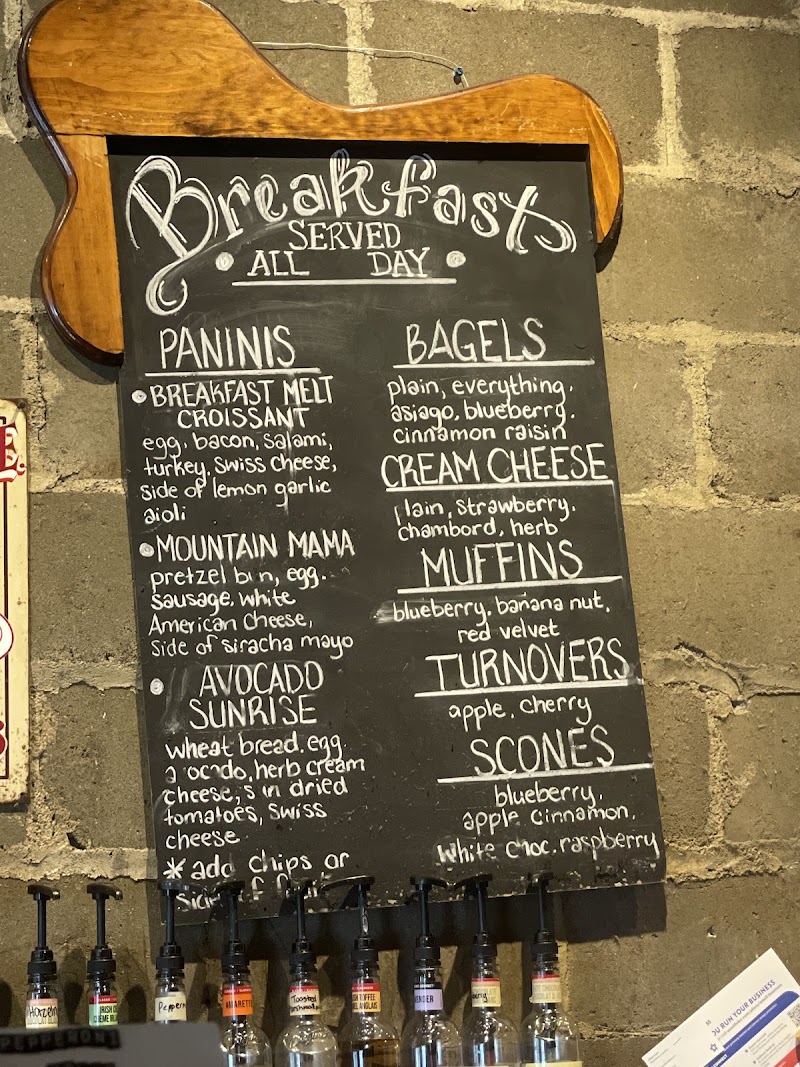 Breakfast
SERVED
• ALL DAY •
PANINIS
• BREAKFAST MELT
CROISSANT
egg, bacon, salami,
turkey, swiss cheese,
side of lemon garlic
aioli
• MOUNTAIN MAMA
pretzel bun, egg,
sausage, white
American cheese,
side of siracha mayo
• AVOCADO
SUNRISE
wheat bread, egg,
avocado, herb cream
cheese, sun dried
tomatoes, swiss
cheese
* add chips or
side of fruit
BAGELS
plain, everything,
asiago, blueberry,
cinnamon raisin
CREAM CHEESE
plain, strawberry,
chambord, herb
MUFFINS
blueberry, banana nut,
red velvet
TURNOVERS
apple, cherry
SCONES
blueberry,
apple cinnamon,
white choc. raspberry
AMARETT
Toasted
RUN YOUR BUSINESS
PEPPERONI